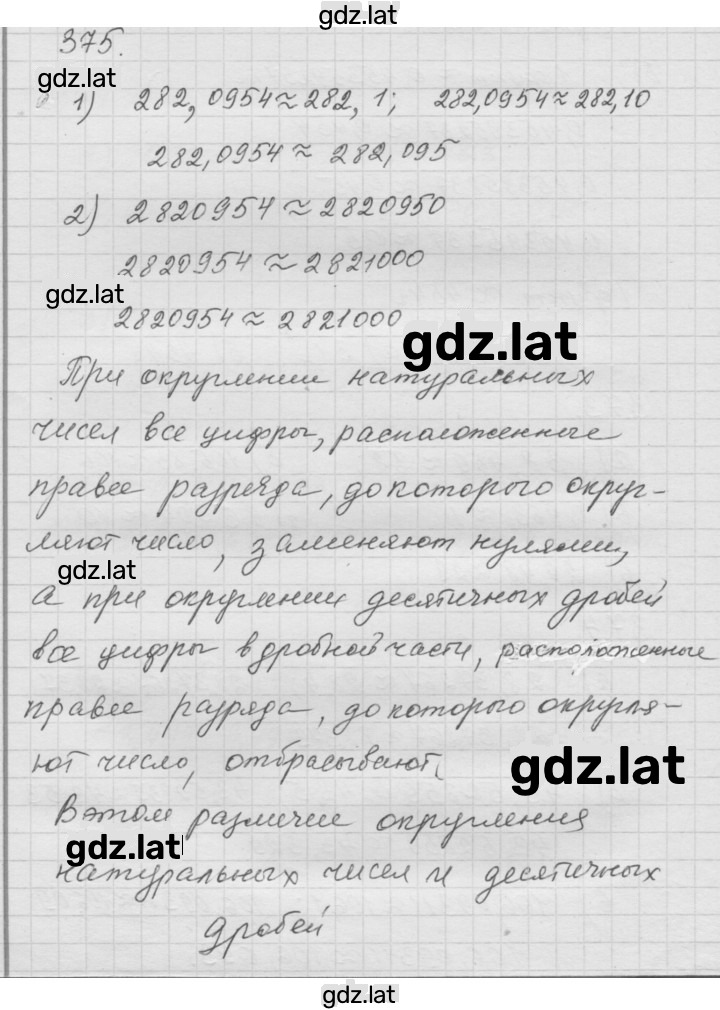 gdz.lat
375.
gdz.lat
1) 282,0954≈282,1; 282,0954≈282,10
282,0954≈ 282,095
2) 2820954≈2820950
2820954≈2821000
gdz.lat
2820954≈ 2821000
gdz.lat
При округлении натуральных
чисел все цифры, расположенные
правее разряда, до которого округ-
ляют число, заменяют нулями,
gdz.lat
а при округлении десятичных дробей
все цифры в дробной части, расположенные
правее разряда, до которого округля-
ют число, отбрасывают.
gdz.lat
В этом различие округления
gdz.lat
натуральных чисел и десятичных
дробей
gdz.lat